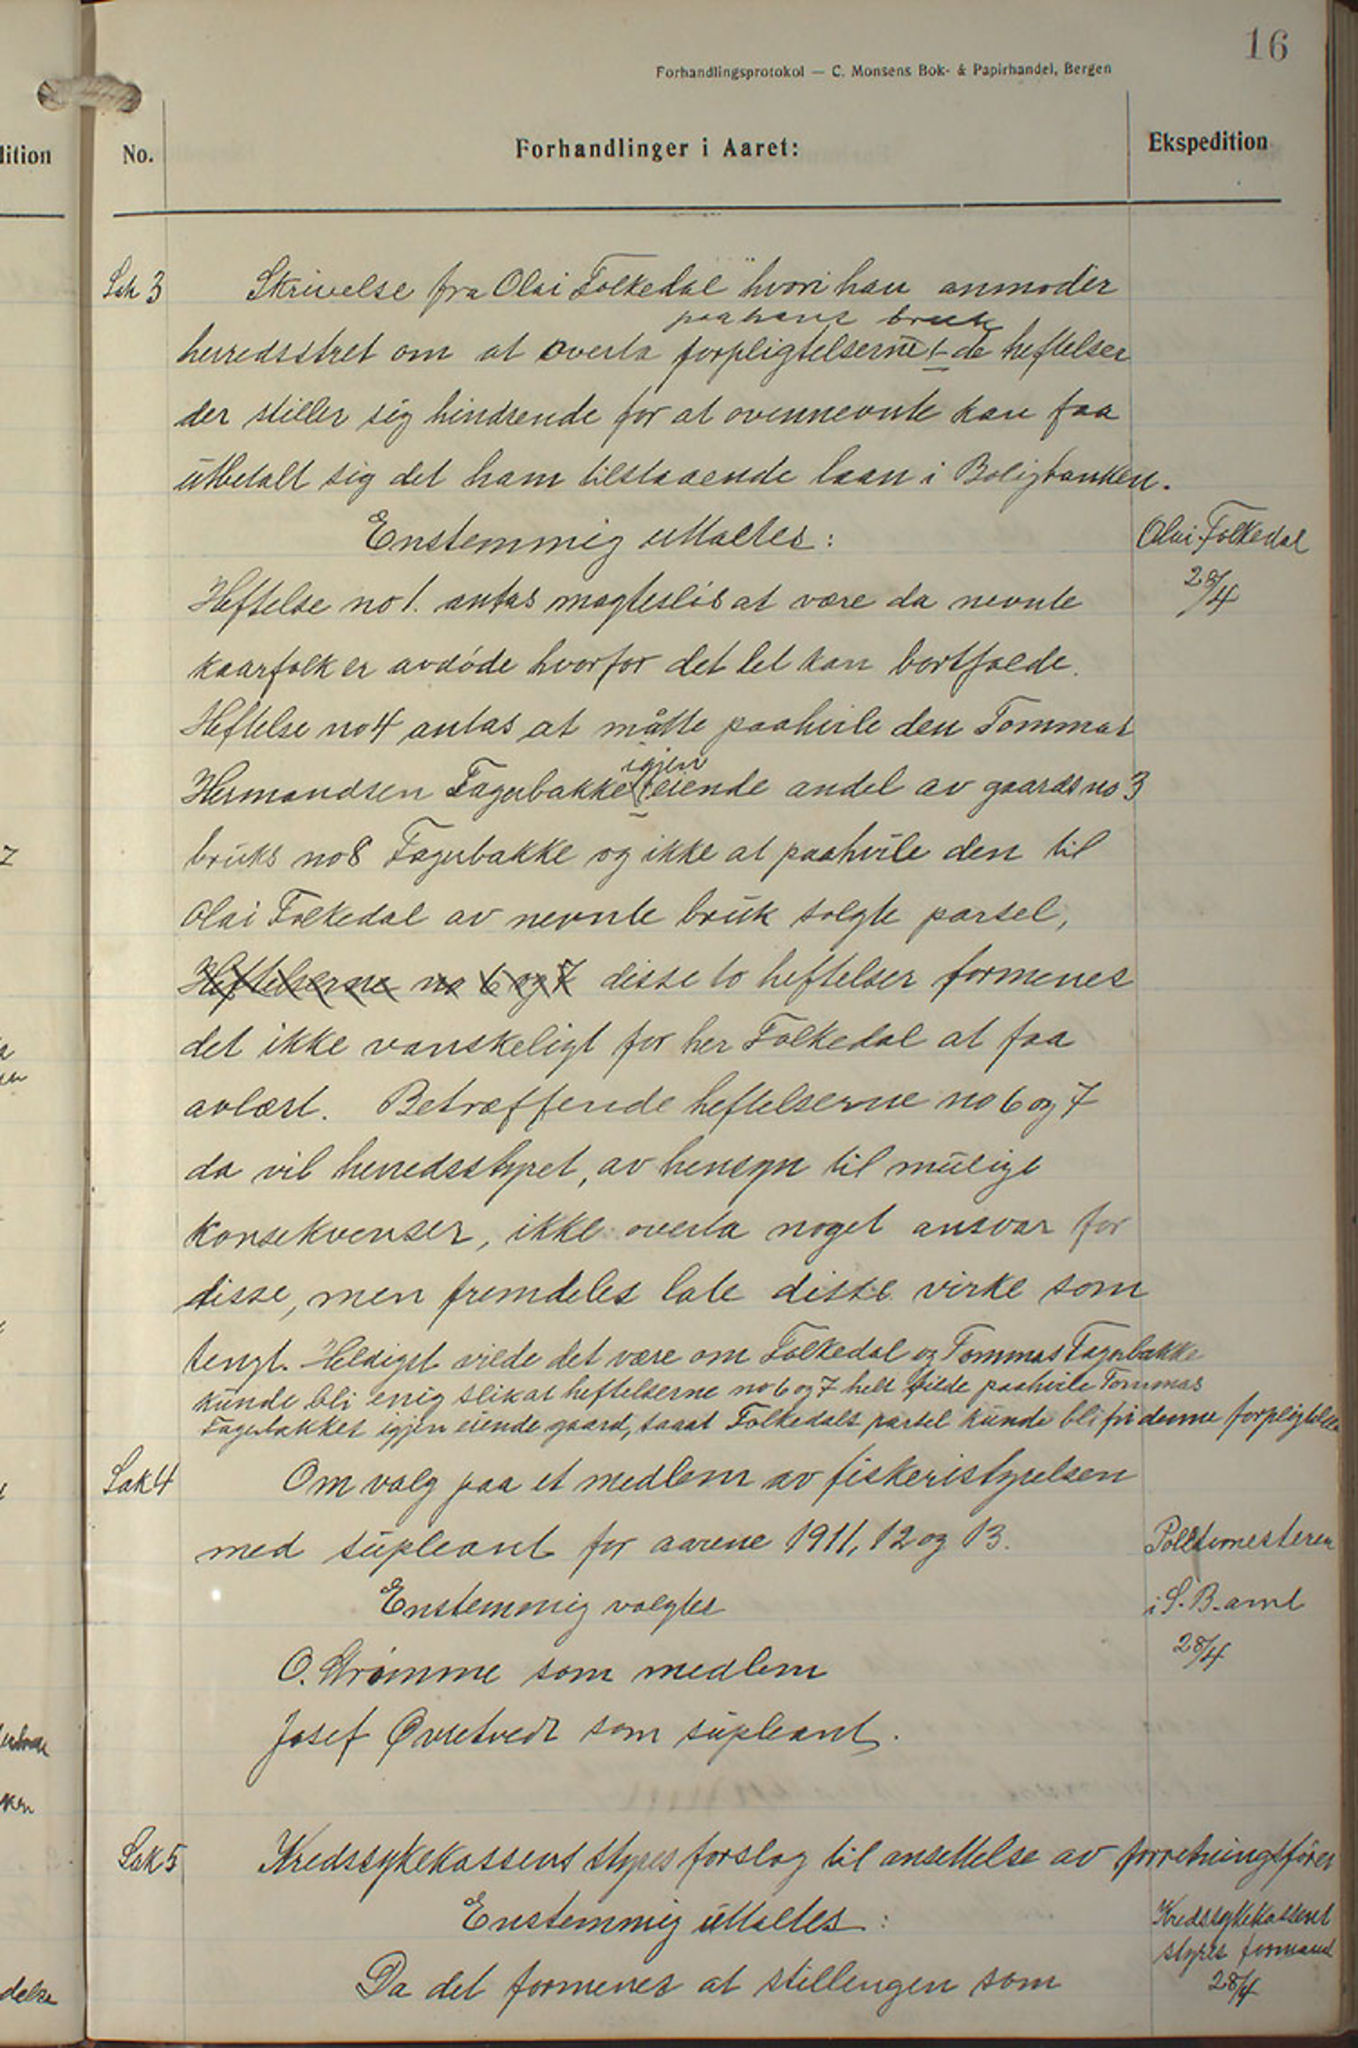 16
Forhandlingsprotokol — C. Monsens Bok- & Papirhandel, Bergen
dition
No.
Forhandlinger i Aaret:
Ekspedition
Sak 3
Skrivelse fra Olai Folkedal hvori han anmoder
paa hans bruk
herredsstret om at overta forpligtelserne de heftelser
der stiller sig hindrende for at ovennevnte kan faa
utbetalt sig det ham tilstaaende laan i Boligbanken.
Enstemmig uttaltes:
Olai Folkedal
28/4
Heftelse no 1. antas magtesløs at være da nevnte
kaarfolk er avdøde hvorfor det let kan bortfalde.
Heftelse no 4 antas at måtte paahvile den Tommas
igjen
Hermandsen Fagerbakke eiende andel av gaards no 3
bruks no 8 Fagerbakke og ikke at paahvile den til
Olai Folkedal av nevnte bruk solgte parsel,
Heftelserne no 6 og 7 disse to heftelser formenes
det ikke vanskeligt for her Folkedal at faa
avlæst. Betræffende heftelserne no 6 og 7
da vil herredsstyret, av hensyn til mulige
konsekvenser, ikke overta noget ansvar for
disse, men fremdeles late disse virke som
tengt. Heldigst vilde det være om Folkedal og Tommas Fagerbakke
kunde bli enig slik at heftelserne no 6 og 7 helt vilde paahvile Tommas
Fagerbakkes igjen eiende gaard, saaat Folkedals parsel kunde bli fri denne forpligtelse
Sak 4
Om valg paa et medlem av fiskeristyrelsen
med supleant for aarene 1911, 12 og 13.
Politimesteren
i S. B. amt
28/4
Enstemmig valgtes
O. Strømme som medlem
Josef Øvretvedt som supleant.
Sak 5
Kredssykekassens styres forslag til ansettelse av forretningsfører
Enstemmig uttaltes:
Kredssykekassens
styres formand
28/4
Da det formenes at stillengen som
delse